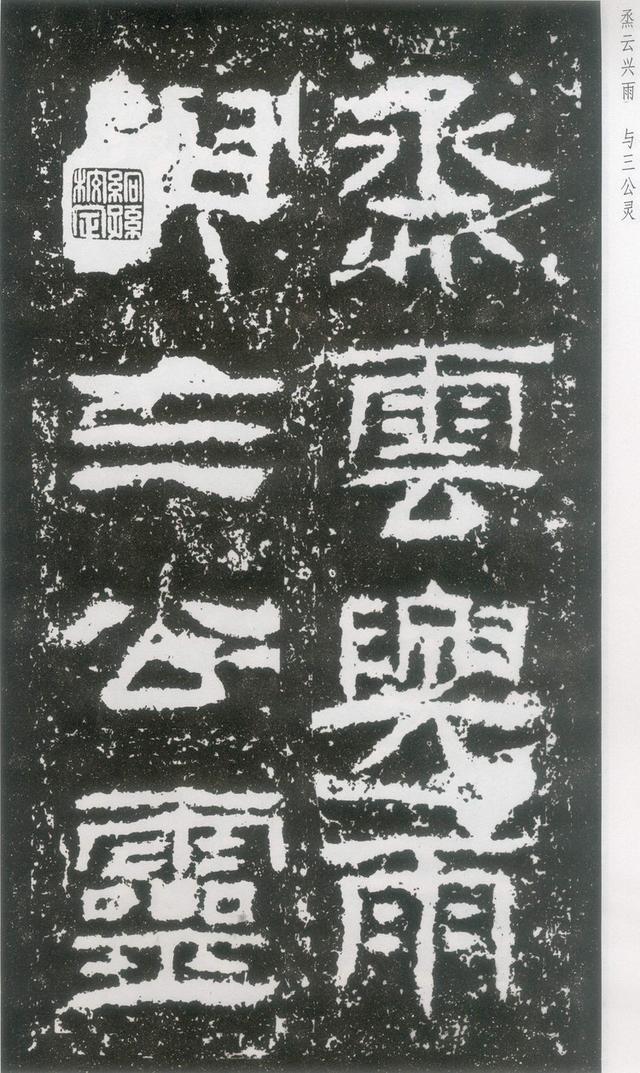 烝云兴雨 与三公灵
烝雲興雨
與三公靈